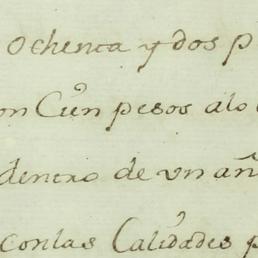 ochenta y dos p
on Cien pesos alo
dentro de un añ
con las Calidades p